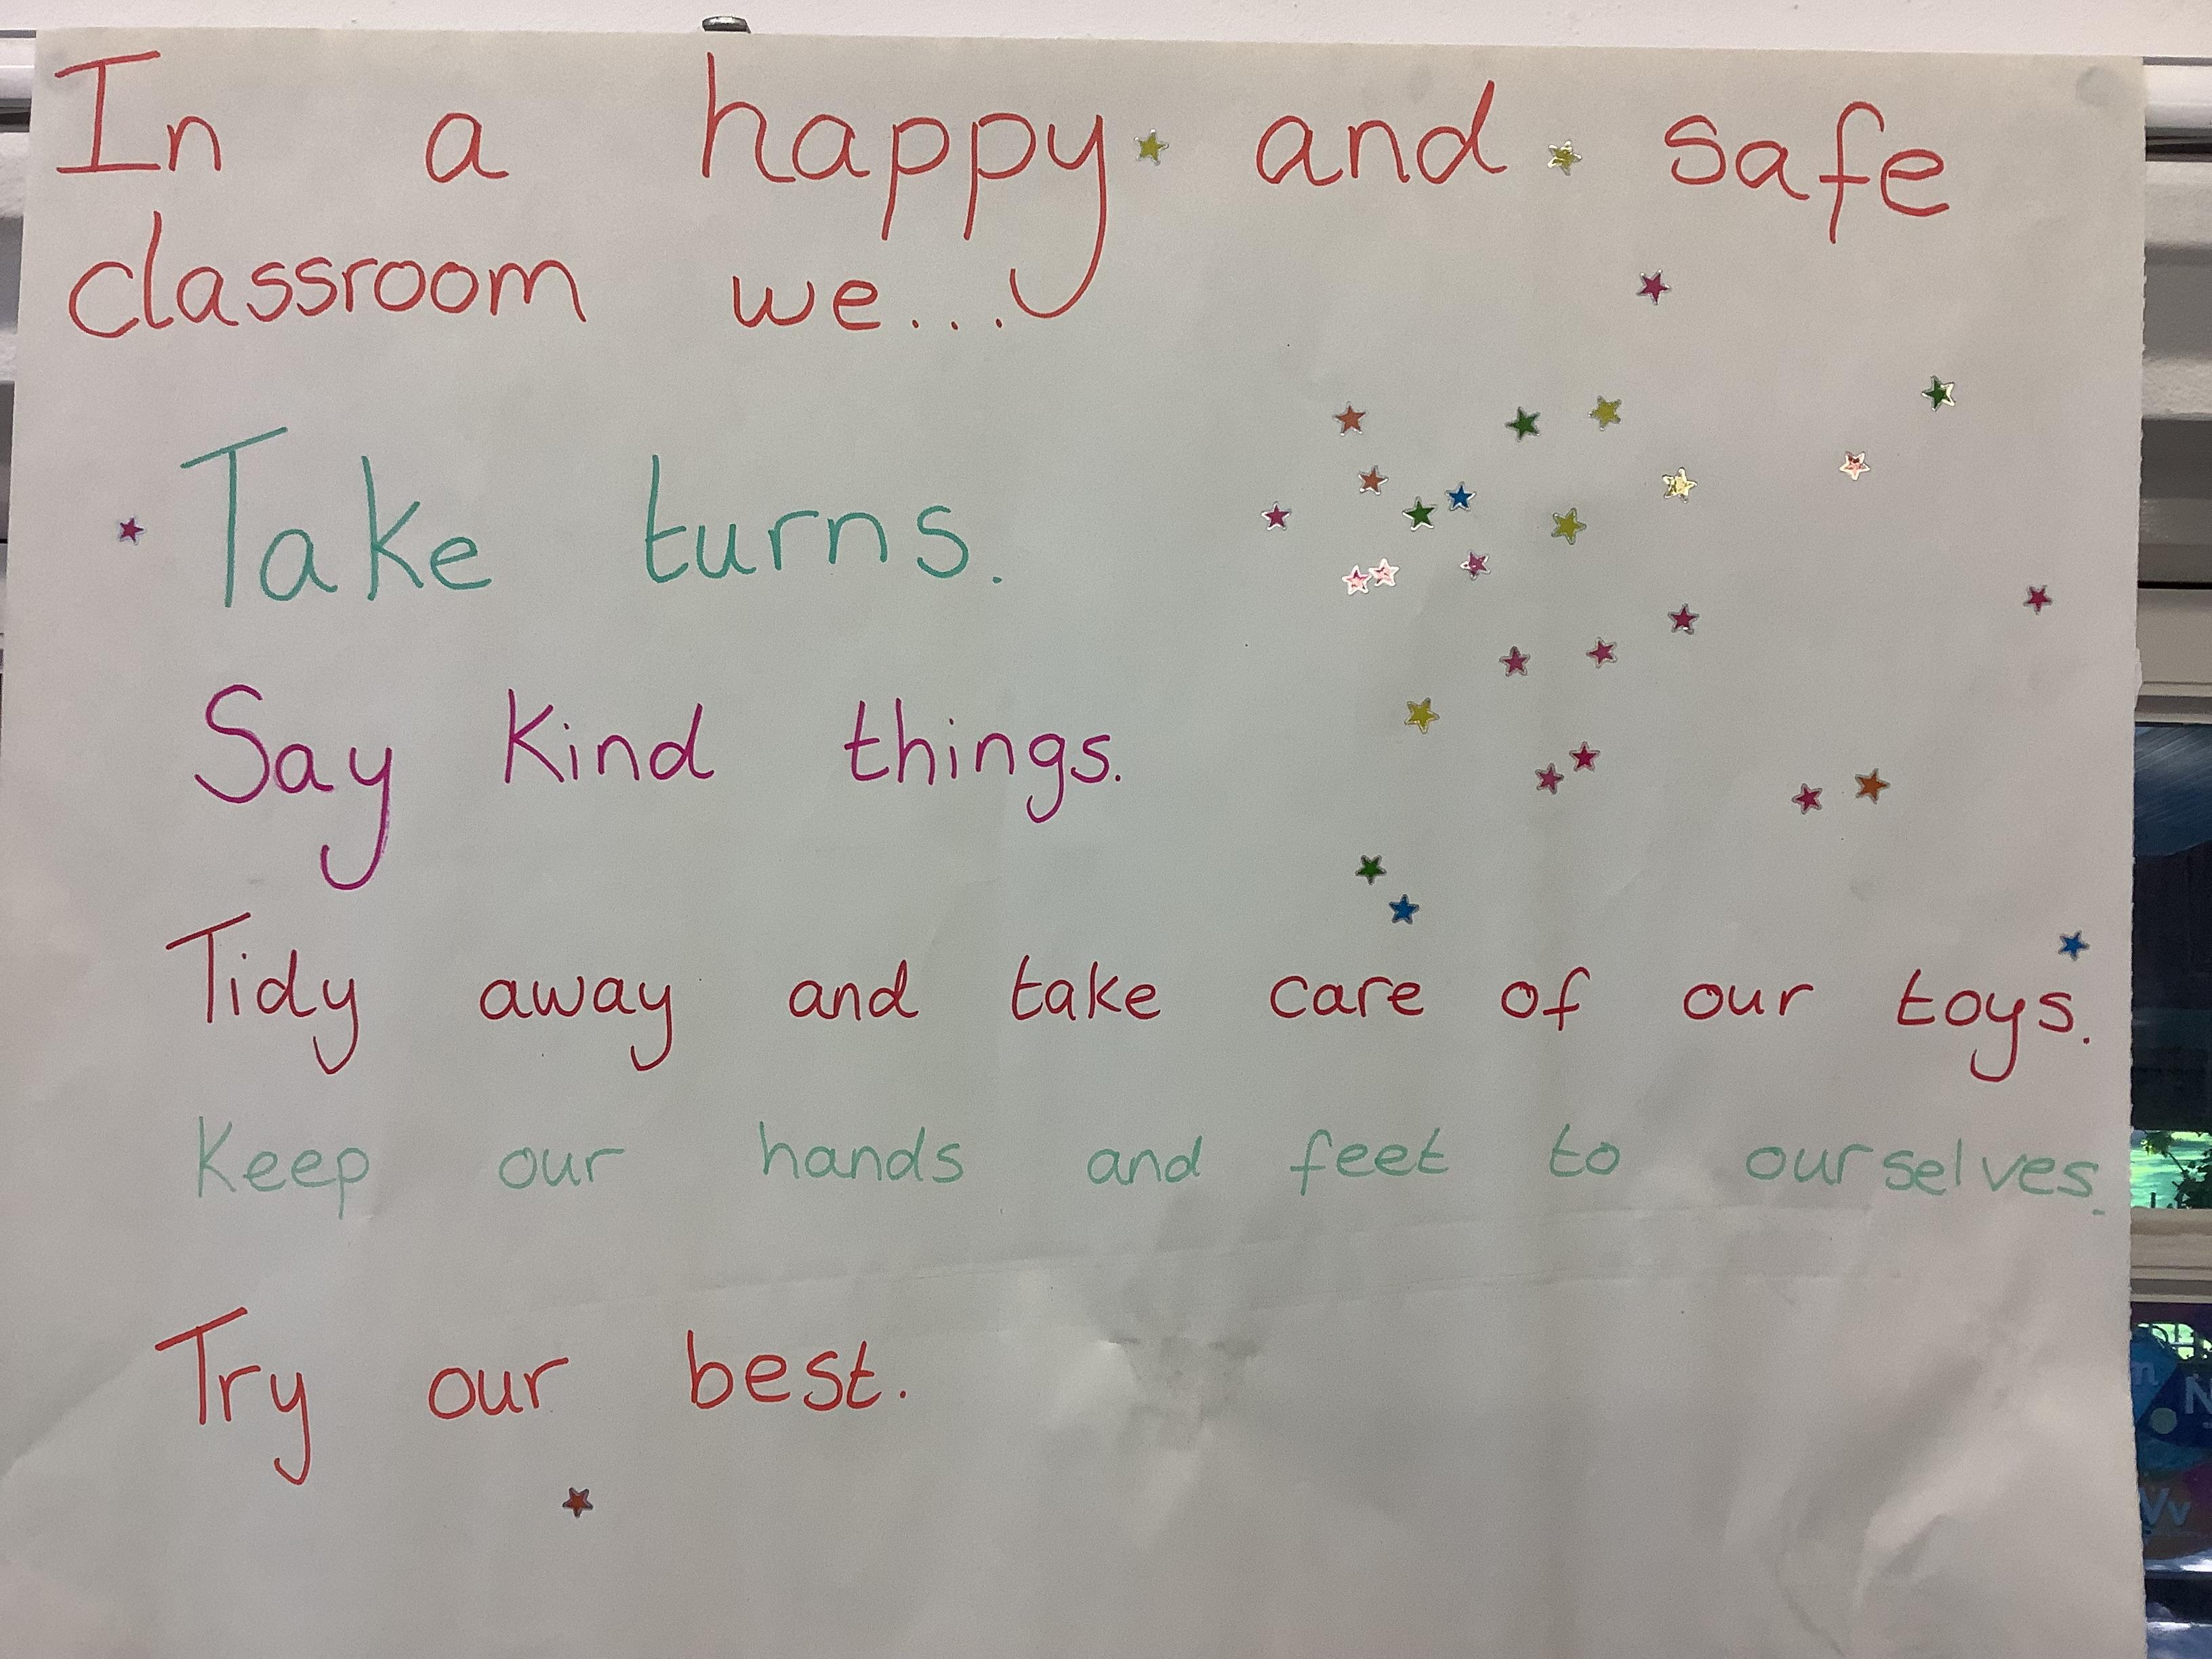 In a happy and safe
classroom we...
Take turns.
Say kind things.
Tidy away and take care of our toys.
Keep our hands and feet to ourselves.
Try our best.
N
Vv